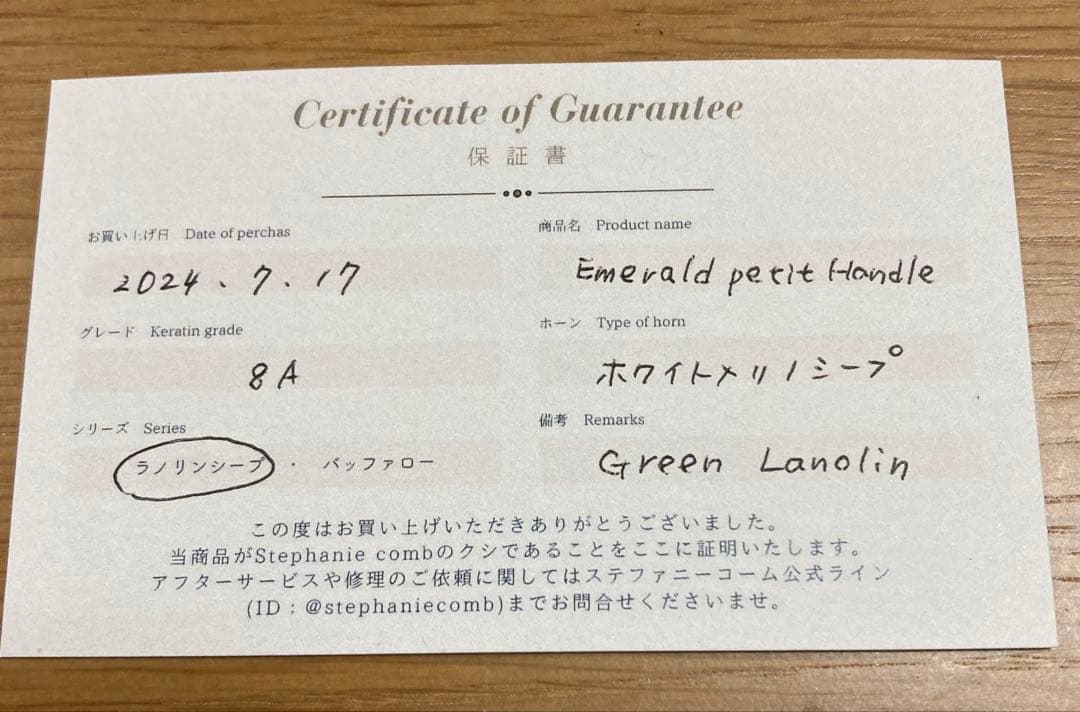 Certificate of Guarantee
保証書
お買い上げ日 Date of perchas
2024.7.17
商品名 Product name
Emerald petit Handle
グレード Keratin grade
8A
ホーン Type of horn
ホワイトメリノシープ
シリーズ Series
ラノリンシープ ・ バッファロー
備考 Remarks
Green Lanolin
この度はお買い上げいただきありがとうございました。
当商品がStephanie combのクシであることをここに証明いたします。
アフターサービスや修理のご依頼に関してはステファニーコーム公式ライン
(ID:@stephaniecomb)までお問合せくださいませ。